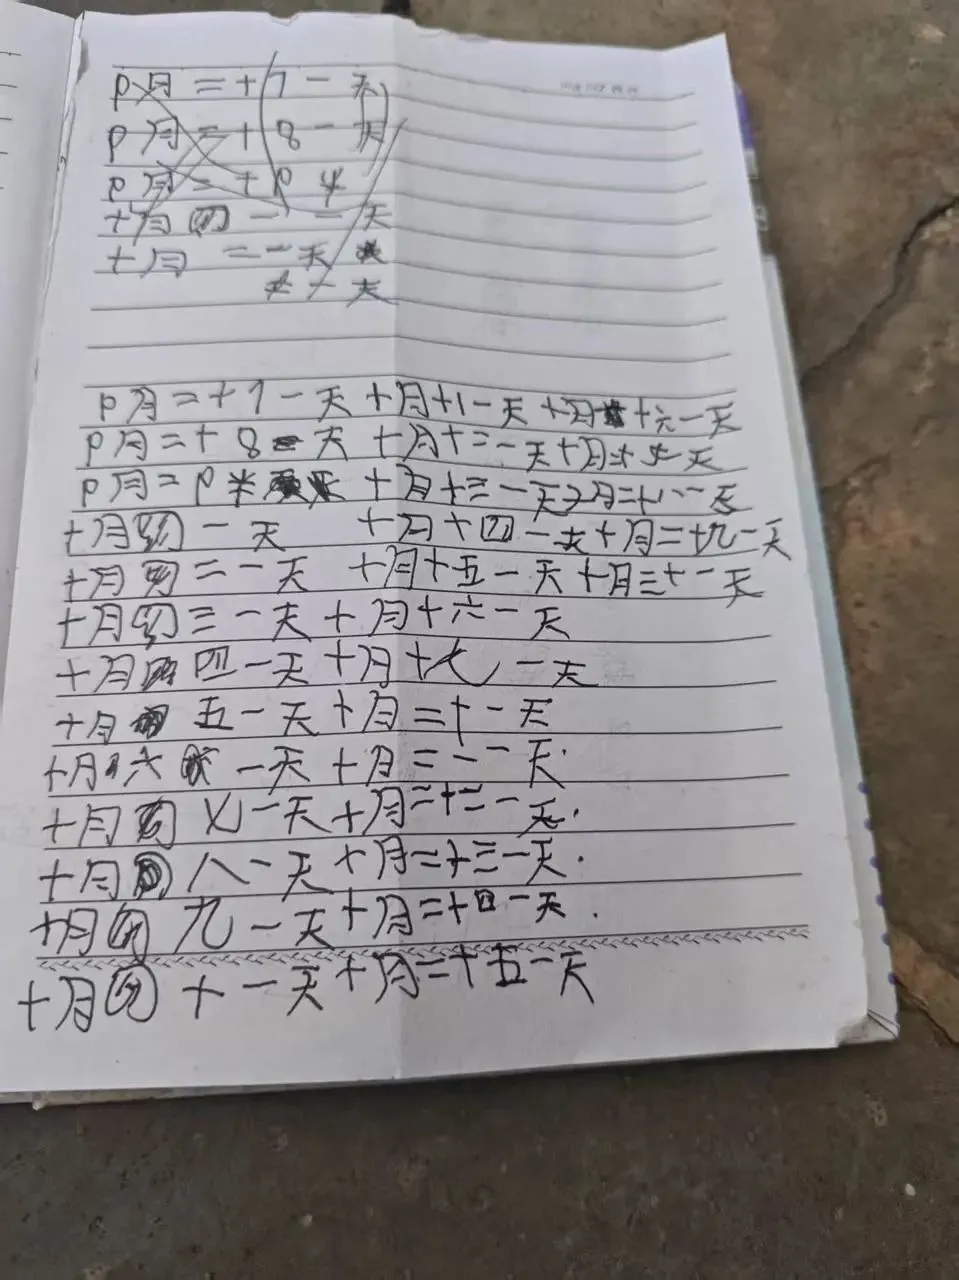 P月二十7一天
P月二十8一天
P月二十P 半
十月 一一天
十月 二一天
一天
P月二十7一天 十月十1一天 十月 十六一天
P月二十8 天 十月十二一天 十月 一天
P月二 P 半 十月十三一天 月二十八一天
十月 一天 十月十四一天 十月二十九一天
十月 二一天 十月十五一天 十月三十一天
十月 三一天 十月十六一天
十月 四一天 十月十七一天
十月 五一天 十月二十一天
十月 六 一天 十月二一一天
十月 七一天 十月二十二一天
十月 八一天 十月二十三一天
十月 九一天 十月二十四一天
十月 十一天 十月二十五一天